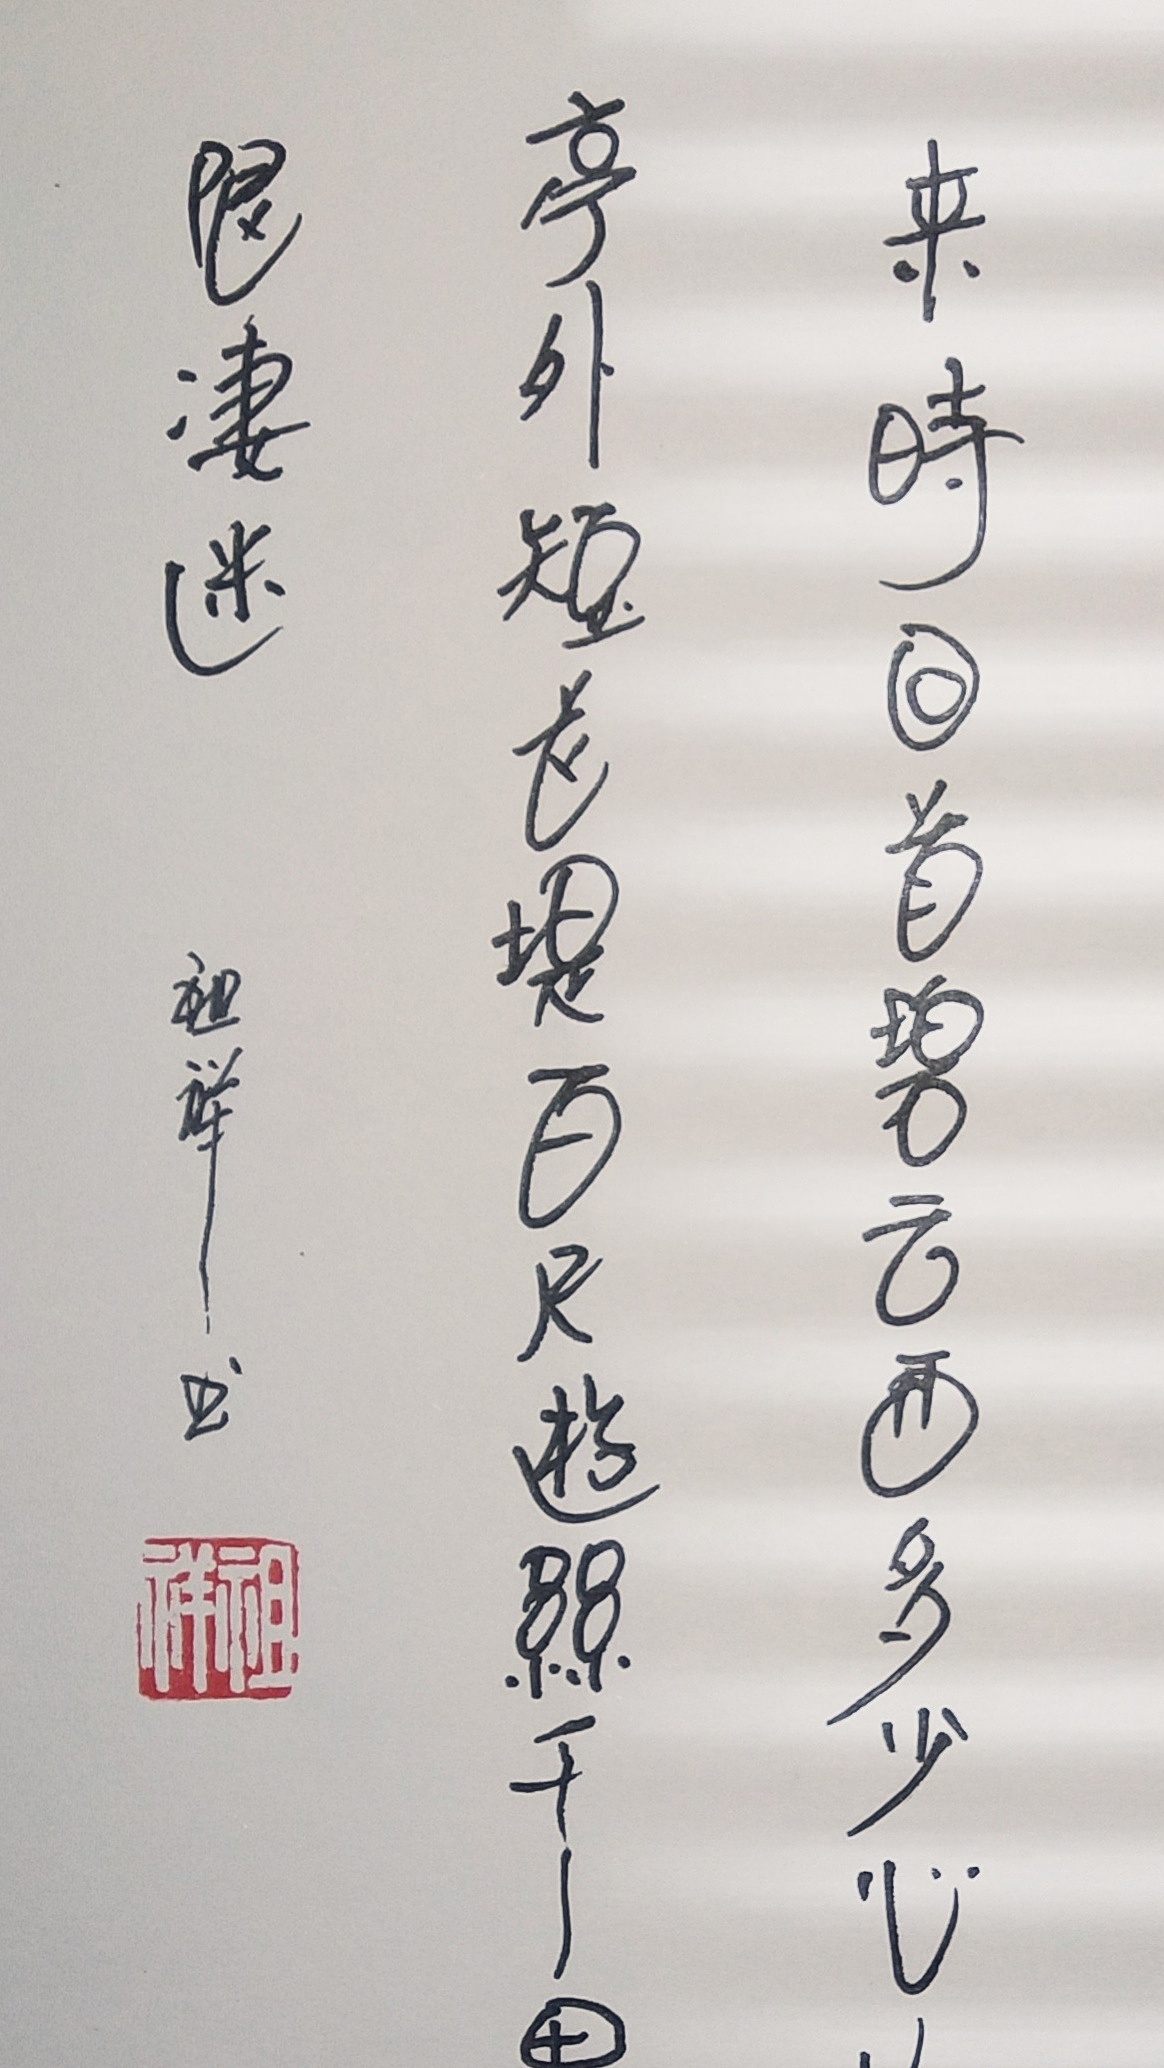 来時回首碧云西多少心
亭外短长堤百尺遊絲千丨田
限凄迷
祖祥书
祖祥